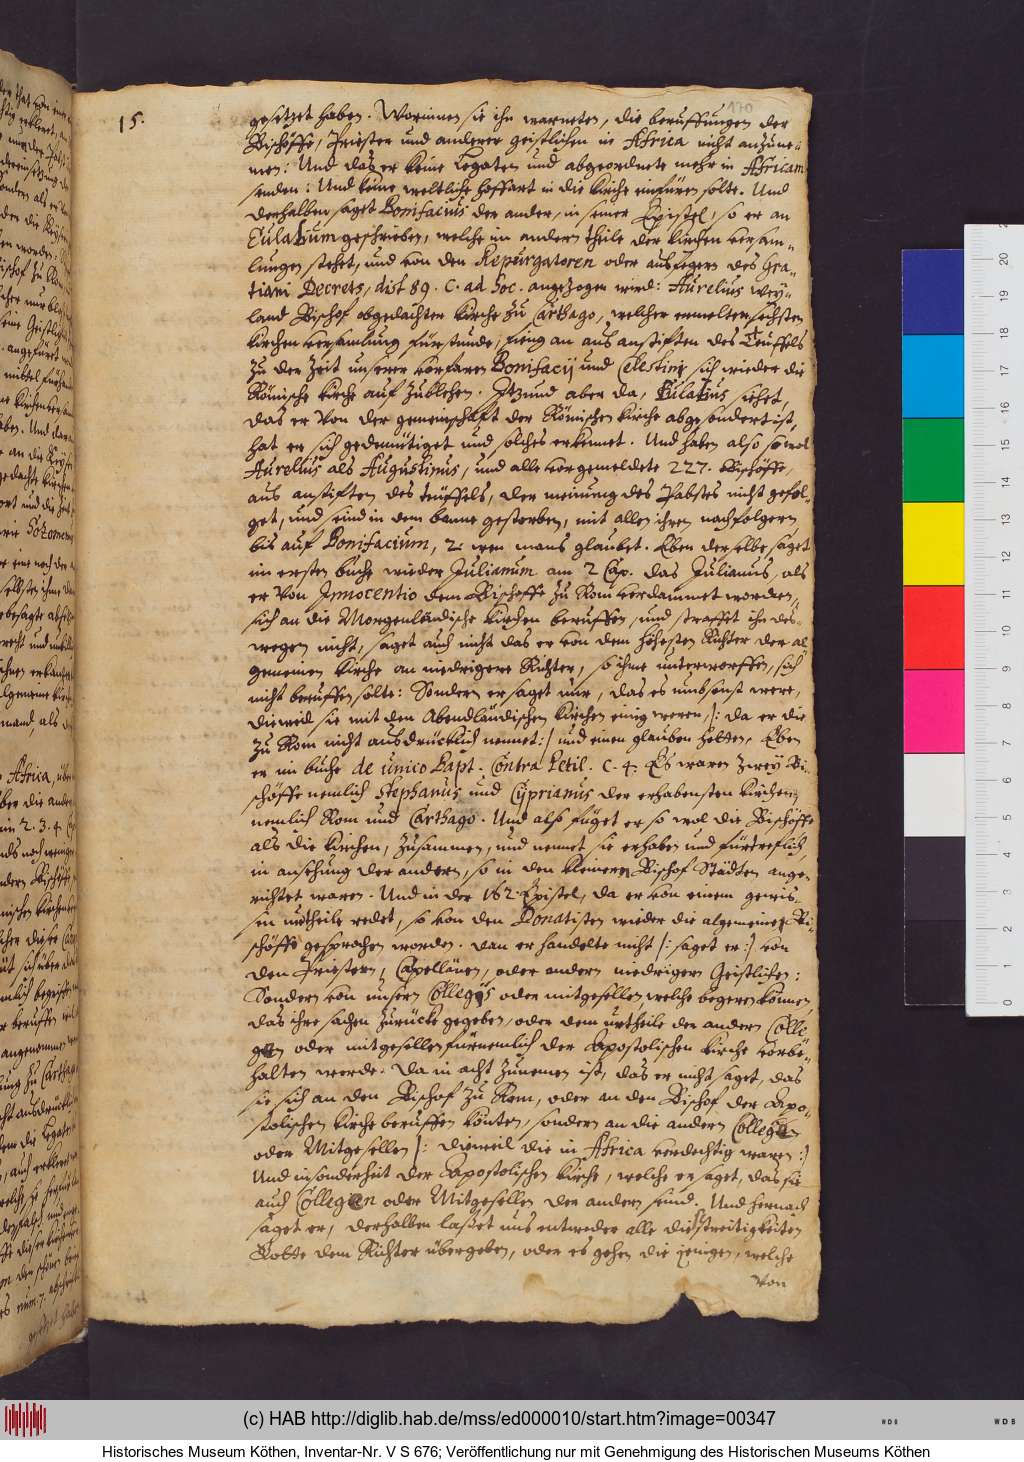 170
15.
gesetzet haben. Worinnen sie ihn warneten, die beruffungen der
Bischöffe, Priester und anderer geistlichen in Africa nicht anzune-
men: Und daz er keine Legaten und abgeordnete mehr in Africam
senden: Und keine weltliche hoffart in die kirche einfüren solte. Und
derhalben saget Bonifacius der ander, in seiner Epistel, so er an
Eulalium geschrieben, welche im andern theile der kirchen versam-
lungen stehet, und von den Repurgatoren oder ausfegern des Gra-
tiani Decrets, dist 89. C. ad hoc. angezogen wird: Aurelius wey-
land Bischof obgedachter kirche zu Carthago, welcher ermelter sechsten
kirchen versamlung fürstunde, fieng an aus anstiften des Teuffels
zu der Zeit unserer vorfaren Bonifacij und Celestini sich wieder die
Römische kirche auf zublehen. Itzund aber da, Eulalius siehet,
das er von der gemeinschaft der Römischen kirche abgesondert ist,
hat er sich gedemütiget und solches erkennet. Und haben also sowol
Aurelius als Augustinus, und alle vorgemeldete 227. Bischöffe,
aus anstiften des teuffels, der meinung des Pabstes nicht gefol-
get, und sind in dem banne gestorben, mit allen ihren nachfolgern,
bis auf Bonifacium, 2. wen mans glaubet. Eben derselbe saget
im ersten buche wieder Julianum am 2 Cap. das Julianus, als
er von Innocentio dem Bischoffe zu Rom verdammet worden,
sich an die Morgenländische kirchen beruffen, und straffet ihn des-
wegen nicht, saget auch nicht das er von dem höhesten Richter der al
gemeinen kirche an niedrigere Richter, so ihme unterworffen, sich
nicht beruffen solte: Sondern er saget nur, das es umbsonst were,
dieweil sie mit den Abendländischen kirchen einig weren, |: da er die
zu Rom nicht ausdrücklich nennet:| und einen glauben hetten. Eben
er im buche de unico Bapt. Contra Petil. C. 4. Es waren zwey Bi-
schöffe nemlich Stephanus und Cyprianus der erhabensten kirchen,
nemlich Rom und Carthago. Und also füget er so wol die Bischöffe
als die kirchen, zusammen, und nennet sie erhaben und fürtreflich,
in ansehung der andern, so in den kleinern Bischof Städten ange-
richtet waren. Und in der 162 Epistel, da er von einem gewis-
sen urtheile redet, so von den Donatisten wieder die algemeinen Bi-
schöffe gesprochen worden. dan er handelte nicht |: saget er:| von
den Priestern, Capellänen, oder andern niedrigern Geistlichen:
Sondern von unsern Collegis oder mitgesellen, welche begeren können,
das ihre sachen zurücke gegeben, oder dem urtheile der andern Colle
gen oder mitgesellen fürnemlich der Apostolischen kirche vorbe-
halten werde. Da in acht zunemen ist, das er nicht saget, das
sie sich an den Bischof zu Rom, oder an den Bischof der Apo-
stolischen kirche beruffen könten, sondern an die andern Collegen
oder Mitgesellen |: dieweil die in Africa verdechtig waren:|
Und insonderheit der Apostolischen kirche, welche er saget, das sie
auch Collegen oder Mitgesellen der andern seind. Und hernach
saget er, derhalben lasset uns entweder alle die streitigkeiten
Gotte dem Richter übergeben, oder es gehen die jenigen, welche
von
(c) HAB http://diglib.hab.de/mss/ed000010/start.htm?image=00347
Historisches Museum Köthen, Inventar-Nr. V S 676; Veröffentlichung nur mit Genehmigung des Historischen Museums Köthen